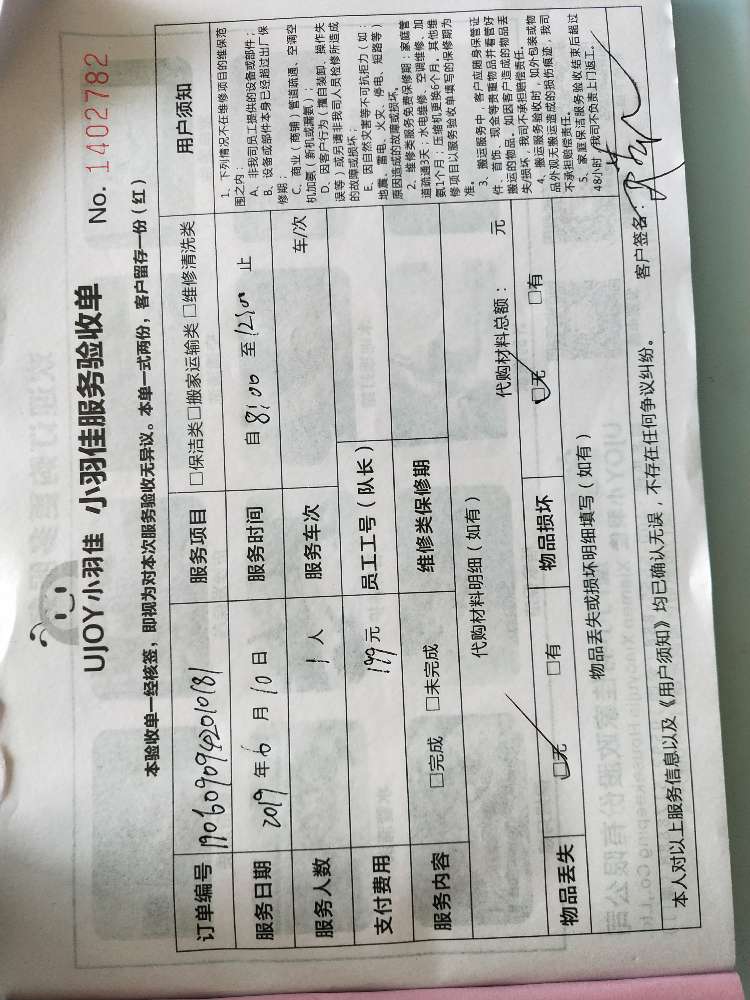 UJOY小羽佳 小羽佳服务验收单
No. 1402782
本验收单一经核签，即视为对本次服务验收无异议。本单一式两份，客户留存一份（红）
订单编号 1906090942010181 服务项目 □保洁类□搬家运输类 □维修清洗类
服务日期 2019年6月10日 服务时间 自8:00至12:00止
服务人数 1人 服务车次 车/次
支付费用 199元 员工工号（队长）
服务内容 □完成 □未完成 维修类保修期
代购材料明细（如有） 代购材料总额： 元
物品丢失 □无 □有 物品损坏 □无 □有
物品丢失或损坏明细填写（如有）
本人对以上服务信息以及《用户须知》均已确认无误，不存在任何争议纠纷。 客户签名：
用户须知
1、下列情况不在维修项目的维保范
围之内：
A、非我司员工提供的设备或部件；
B、设备或部件本身已经超过出厂保
修期；
C、商业（商铺）管道疏通、空调空
机加氨（新机或漏氨）；
D、因客户行为（擅自装卸、操作失
误等）或另请非我司人员检修所造成
的故障或损坏；
E、因自然灾害等不可抗拒力（如：
地震、雷电、火灾、停电、短路等）
原因造成的故障或损坏。
2、维修类服务免费保修期：家庭管
道疏通3天；水电维修、空调维修、加
氨1个月；压缩机更换6个月。其他维
修项目以服务验收单填写的保修期为
准。
3、搬运服务中，客户应随身保管证
件、首饰、现金等贵重物品并看管好
搬运的物品。如因客户造成的物品丢
失/损坏，我司不承担赔偿责任。
4、搬运服务验收时，如外包装或物
品外观无搬运造成的损伤痕迹，我司
不承担赔偿责任。
5、家庭保洁服务验收结束后超过
48小时，我司不负责上门返工。